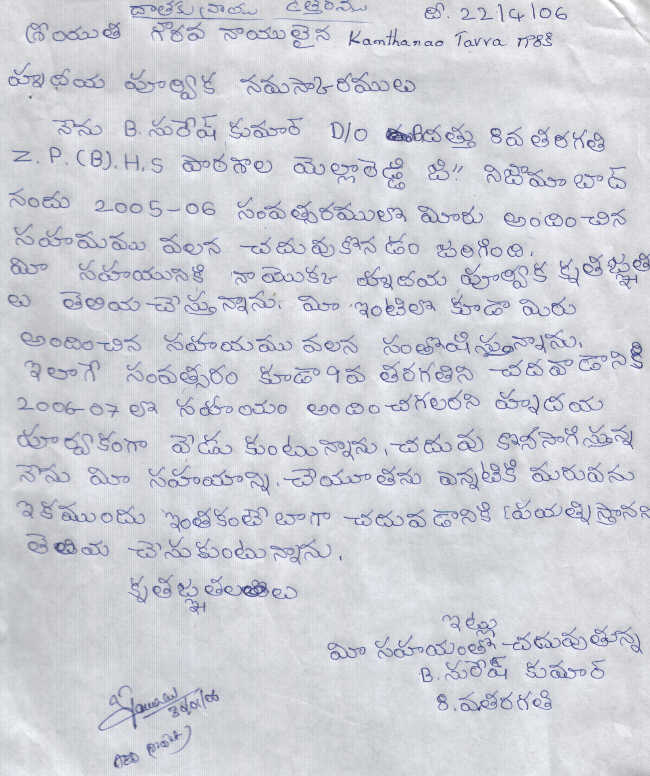 దాతకు వ్రాయు ఉత్తరము తే. 22/4/06
శ్రీయుత గౌరవ నాయులైన Kamthanao Tavva గారికి
హృదయ పూర్వక నమస్కారములు
నేను B. సురేష్ కుమార్ D/O దత్తు 8వ తరగతి
Z.P.(B).H.S పాఠశాల యెల్లారెడ్డి జి!! నిజామాబాద్
నందు 2005-06 సంవత్సరములో మీరు అందించిన
సహయము వలన చదువుకొనడం జరిగింది.
మీ సహయనికి నా యొక్క హృదయ పూర్వక కృతజ్ఞత
లు తెలియ చేస్తున్నాను. మీ ఇంటిలో కూడా మిరు
అందించిన సహయము వలన సంతోషిస్తున్నాను.
ఇలాగే సంవత్సరం కూడా 9వ తరగతిని చదవడానికి
2006-07 లో సహయం అందించగలరని హృదయ
పూర్వకంగా వేడుకుంటున్నాను. చదువు కొనసాగిస్తున్న
నేను మీ సహయాన్ని, చేయూతను ఎన్నటికి మరువను
ఇకముందు ఇంతకంటే బాగా చదువడానికి ప్రయత్నిస్తానని
తెలియ చేసుకుంటున్నాను.
కృతజ్ఞతలతో
ఇట్లు
మీ సహయంతో చదువుతున్న
B. సురేష్ కుమార్
8. వతరగతి